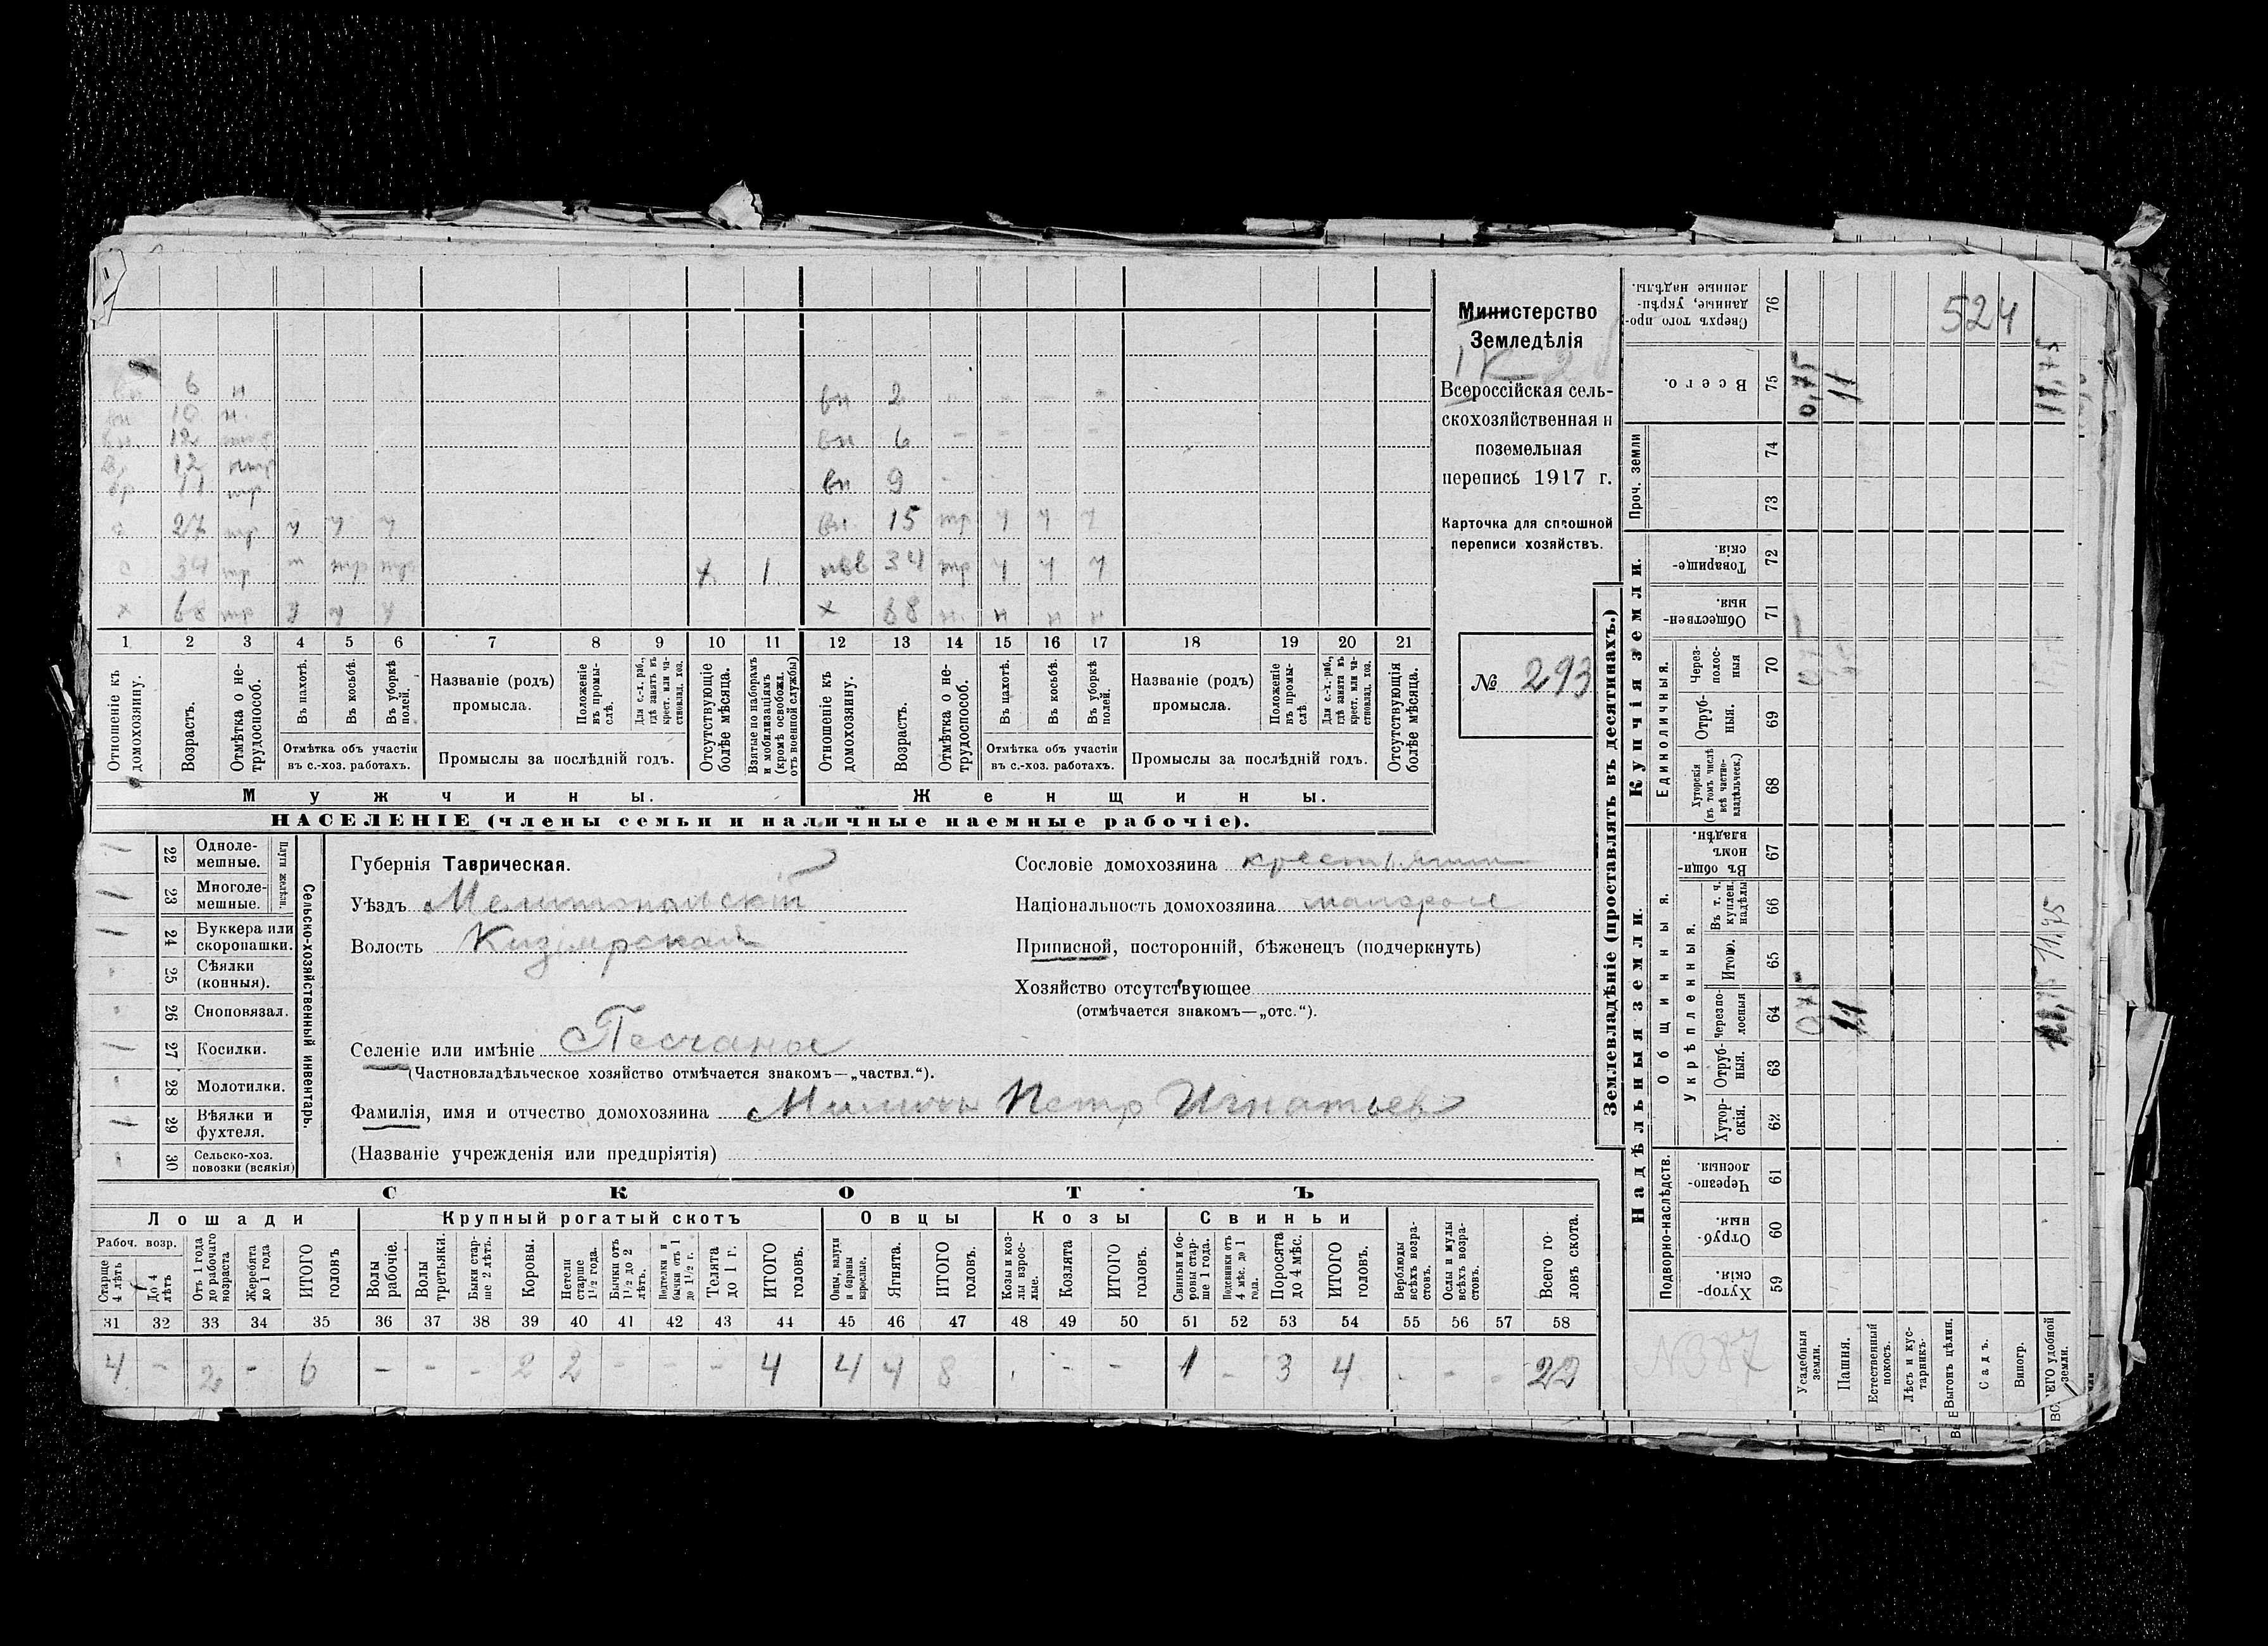 Министерство
Земледѣлія
Всероссійская сель-
скохозяйственная и
поземельная
перепись 1917 г.
Карточка для сплошной
переписи хозяйствъ.
№ 293
524
6 н
вн 10 н.
12
12
11
27 тр у у у
34 тр 1
х 68 тр у у у
вн 2
вн 6
вн 9
вн. 15 тр у у у
34 тр у у у
х 68 н. н н н
1 2 3 4 5 6 7 8 9 10 11 12 13 14 15 16 17 18 19 20 21
Отношеніе къ домохозяину.
Возрастъ.
Отмѣтка о не-трудоспособ.
Въ пахотѣ.
Въ косьбѣ.
Въ уборкѣ полей.
Отмѣтка объ участіи
въ с.-хоз. работахъ.
Названіе (родъ)
промысла.
Положеніе въ промы-слѣ.
Для с.-х. раб., гдѣ занятъ въ крест. или ча-стновлад. хоз.
Промыслы за послѣдній годъ.
Отсутствующіе болѣе мѣсяца.
Взятые по наборамъ и мобилизаціямъ (кромѣ освобожл. отъ военной службы)
Отношеніе къ домохозяину.
Возрастъ.
Отмѣтка о не-трудоспособ.
Въ пахотѣ.
Въ косьбѣ.
Въ уборкѣ полей.
Отмѣтка объ участіи
въ с.-хоз. работахъ.
Названіе (родъ)
промысла.
Положеніе въ промы-слѣ.
Для с.-х. раб., гдѣ занята въ крест. или ча-стновлад. хоз.
Промыслы за послѣдній годъ.
Отсутствующія болѣе мѣсяца.
Мужчины. Женщины.
НАСЕЛЕНІЕ (члены семьи и наличные наемные рабочіе).
Сельско-хозяйственный инвентарь.
Плуги желѣзн.
22 Одноле-мешные.
23 Многоле-мешные.
24 Буккера или скоропашки.
25 Сѣялки (конныя).
26 Сноповязал.
27 Косилки.
28 Молотилки.
29 Вѣялки и фухтеля.
30 Сельско-хоз. повозки (всякія)
Губернія Таврическая.
Уѣздъ Мелитопольскій
Волость Кизіярская
Селеніе или имѣніе Песчаное
(Частновладѣльческое хозяйство отмѣчается знакомъ—„частвл.“).
Фамилія, имя и отчество домохозяина Петр Игнатьев
(Названіе учрежденія или предпріятія)
Сословіе домохозяина крестьянин
Національность домохозяина малорос
Приписной, посторонній, бѣженецъ (подчеркнуть)
Хозяйство отсутствующее
(отмѣчается знакомъ—„отс.“).
СКОТЪ
Лошади Крупный рогатый скотъ Овцы Козы Свиньи
Рабоч. возр.
Старше 4 лѣтъ
До 4 лѣтъ
Отъ 1 года до рабочаго возраста
Жеребята до 1 года
ИТОГО головъ
Волы рабочіе.
Волы третьяки.
Быки стар-ше 2 лѣтъ.
Коровы.
Нетели старше 1½ года.
Бычки отъ 1½ до 2 лѣтъ.
Подтелки и бычки отъ 1 до 1½ г.
Телята до 1 г.
ИТОГО головъ.
Овцы, валухи и бараны взрослые.
Ягнята.
ИТОГО головъ.
Козы и коз-лы взрос-лые.
Козлята
ИТОГО головъ.
Свиньи и бо-ровы стар-ше 1 года.
Подсвинки отъ 4 мѣс. до 1 года.
Поросята до 4 мѣс.
ИТОГО головъ.
Верблюды всѣхъ возра-стовъ.
Ослы и мулы всѣхъ возра-стовъ.
Всего го-ловъ скота.
31 32 33 34 35 36 37 38 39 40 41 42 43 44 45 46 47 48 49 50 51 52 53 54 55 56 57 58
4 - 2 - 6 - - - 2 2 - - - 4 4 4 8 - - 1 - 3 4 - - 22
Землевладѣніе (проставлять въ десятинахъ.)
Надѣльныя земли.
Купчія земли.
Проч. земли
Подворно-наслѣдств.
Общинныя.
Укрѣпленныя.
Единоличныя.
59 Хутор-скія.
60 Отруб-ныя.
61 Черезпо-лосныя.
62 Хутор-скія.
63 Отруб-ныя.
64 Черезпо-лосныя
65 Итого.
66 Въ т. ч. куплен. надѣлы
67 Въ общи-номъ владѣн.
68 Хуторскія (въ томъ числѣ всѣ частно-владѣльческ.)
69 Отруб-ныя.
70 Через-полос-ныя
71 Обществен-ныя.
72 Товарище-скія.
73
74
75 Всего.
76 Сверхъ того про-данные, укрѣп-ленные надѣлы.
Усадебныя земли.
Пашня.
Естественный покосъ.
Лѣсъ и кус-тарникъ.
Выгонъ цѣлин.
Садъ.
Виногр.
ВСЕГО удобной земли.
0,75
11
11,75
11
11,75
N387